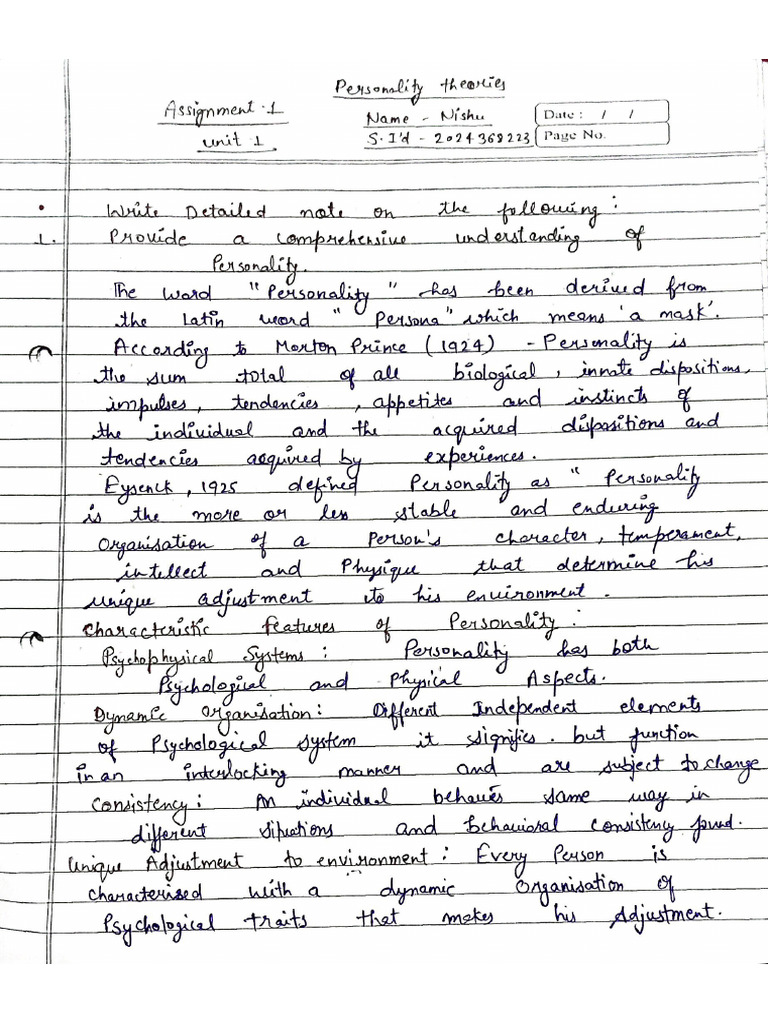 Personality theories
Assignment-1
Name - Nishu
Date : / /
unit 1
S.I'd - 2024368223
Page No.
• Write Detailed note on the following :
1. Provide a comprehensive understanding of
Personality.
The word "Personality" has been derived from
the Latin word "Persona" which means 'a mask'.
According to Morton Prince (1924) - Personality is
the sum total of all biological, innate dispositions,
impulses, tendencies, appetites and instincts of
the individual and the acquired dispositions and
tendencies acquired by experiences.
Eysenck, 1925 defined Personality as "Personality
is the more or less stable and enduring
Organisation of a Person's character, temperament,
intellect and Physique that determine his
unique adjustment to his environment.
Characteristic features of Personality :
Psychophysical Systems : Personality has both
Psychological and Physical Aspects.
Dynamic Organisation : Different Independent elements
of Psychological system it signifies. but function
in an interlocking manner and are subject to change
Consistency : An individual behaves same way in
different situations and behavioral consistency found.
Unique Adjustment to environment : Every Person is
characterised with a dynamic Organisation of
Psychological traits that makes his Adjustment.